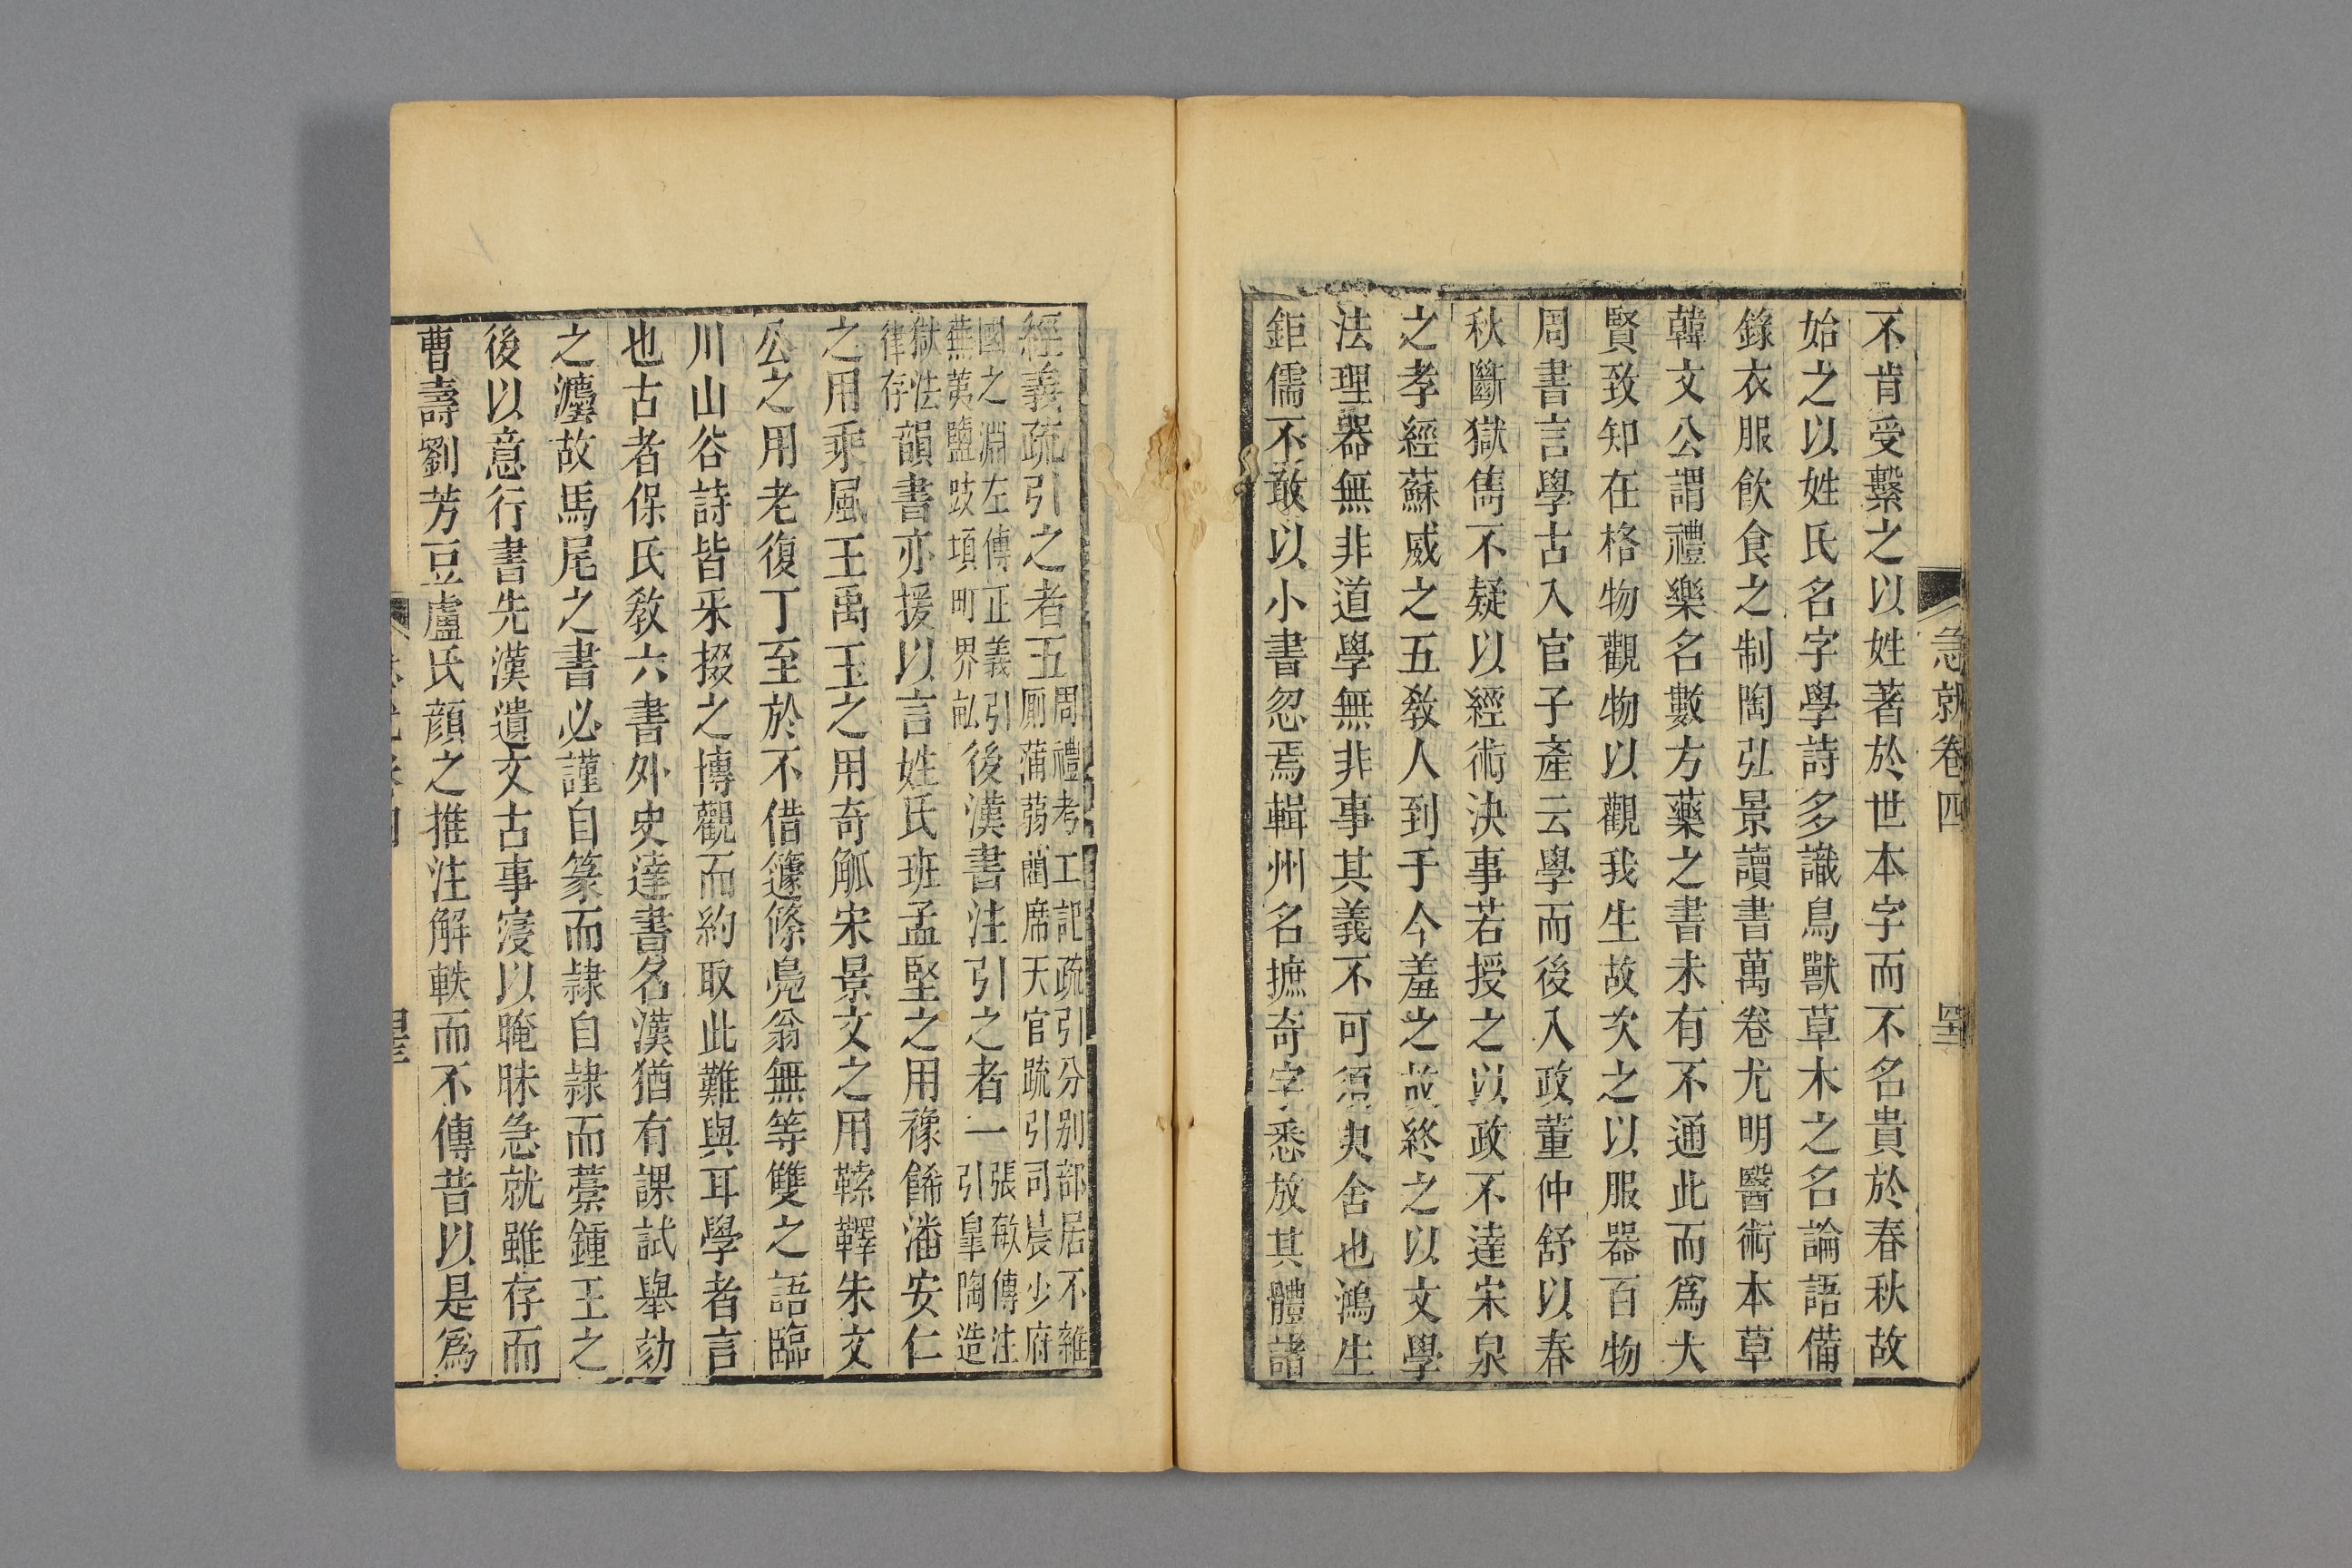 急就卷四
不肯受繫之以姓著於世本字而不名貴於春秋故
始之以姓氏名字學詩多識鳥獸草木之名論語備
錄衣服飲食之制陶弘景讀書萬卷尤明醫術本草
韓文公謂禮樂名數方藥之書未有不通此而爲大
賢致知在格物觀物以觀我生故次之以服器百物
周書言學古入官子產云學而後入政董仲舒以春
秋斷獄雋不疑以經術決事若授之以政不達宋泉
之孝經蘇威之五教人到于今羞之故終之以文學
法理器無非道學無非事其義不可須臾舍也鴻生
鉅儒不敢以小書忽焉輯州名摭奇字悉放其體諸
經義疏引之者五周禮考工記疏引分別部居不雜
廁蒲蒻藺席天官疏引司晨少府
國之淵左傳正義引
蕪荑鹽豉頃町界畝後漢書注引之者一張敏傳注
引皐陶造
獄法
律存韻書亦援以言姓氏班孟堅之用豫餙潘安仁
之用乘風王禹玉之用奇觚宋景文之用鞣鞾朱文
公之用老復丁至於不借籧篨鳧翁無等雙之語臨
川山谷詩皆采掇之博觀而約取此難與耳學者言
也古者保氏教六書外史達書名漢猶有課試舉劾
之灋故馬尾之書必謹自篆而隷自隷而藁鍾王之
後以意行書先漢遺文古事寖以晻昧急就雖存而
曹壽劉芳豆盧氏顏之推注解軼而不傳昔以是爲